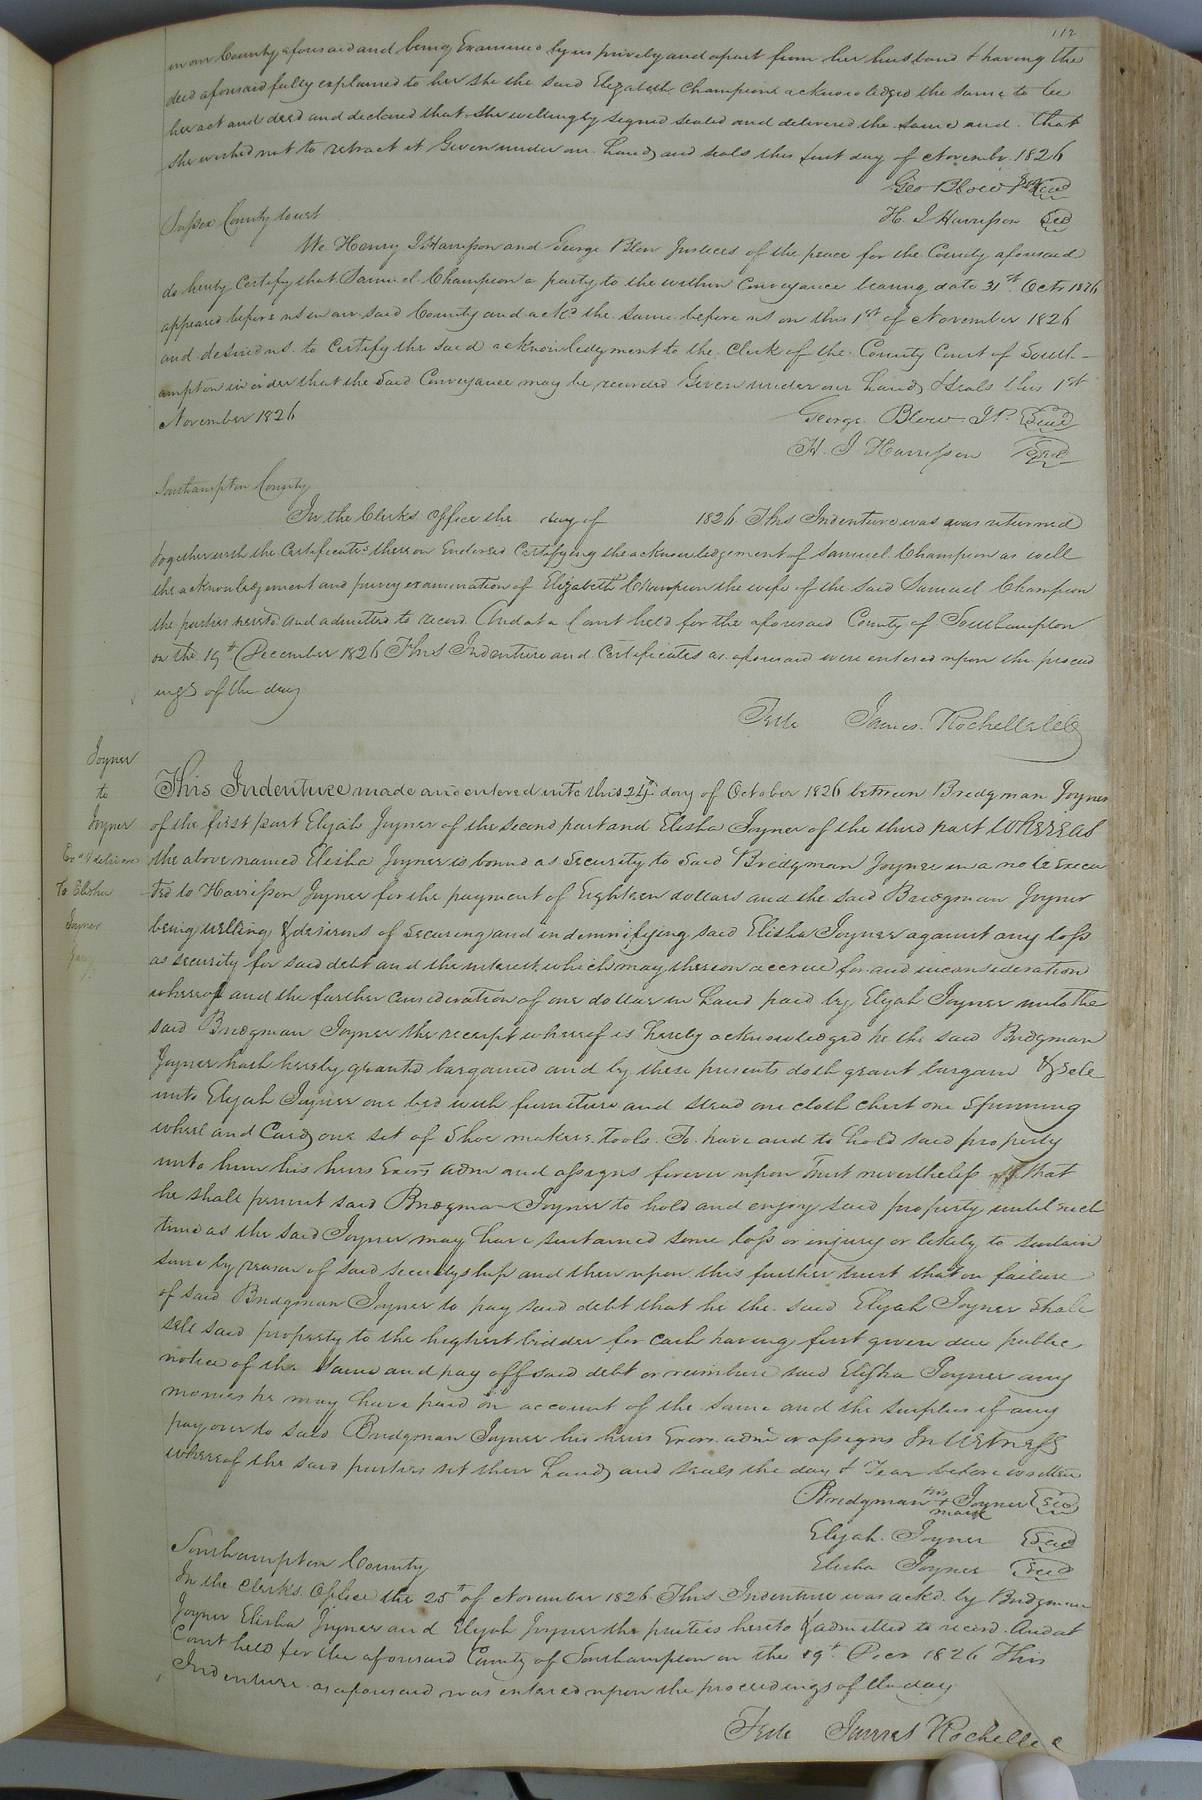 112
in our County aforesaid and being Examined by us privily and apart from her husband & having the
deed aforesaid fully explained to her she the said Elizabeth Champion acknowledged the same to be
her act and deed and declared that she willingly signed sealed and delivered the same and that
she wished not to retract it Given under our hands and seals this first day of November 1826
Geo Blow Seal
H. J Harrisson Seal
Sussex County Court
We Henry J Harrisson and George Blow Justices of the peace for the County aforesaid
do hereby Certify that Samuel Champion a party to the within Conveyance bearing date 31st Octr 1826
appeared before us in our said County and ackd the same before us on this 1st of November 1826
and desired us to Certify the said acknowledgment to the Clerk of the County Court of South-
ampton in order that the said Conveyance may be recorded Given under our hands & seals this 1st
November 1826
George Blow J.P. Seal
H. J Harrisson Seal
Southampton County
In the Clerks Office the day of 1826 This Indenture was was returned
together with the Certificates thereon Endorsed Certifying the acknowledgement of Samuel Champion as well
the acknowledgement and privy examination of Elizabeth Champion the wife of the said Samuel Champion
the parties hereto and admitted to record And at a Court held for the aforesaid County of Southampton
on the 19th December 1826 This Indenture and Certificates as aforesaid were entered upon the proceed
ings of the day
Teste James Rochelle Clk
Joyner
to
Joyner
Exd & delivered
To Elisha
Joyner
This Indenture made and entered into this 24th day of October 1826 between Bridgman Joyner
of the first part Elijah Joyner of the second part and Elisha Joyner of the third part Whereas
the above named Elisha Joyner is bound as Security to said Bridgman Joyner in a note Execu
ted to Harrisson Joyner for the payment of Eighteen dollars and the said Bridgman Joyner
being willing & desirous of securing and indemnifying said Elisha Joyner against any loss
as security for said debt and the interest which may thereon accrue for and in consideration
whereof and the further Consideration of one dollar in hand paid by Elijah Joyner unto the
said Bridgman Joyner the receipt whereof is hereby acknowledged he the said Bridgman
Joyner hath hereby granted bargained and by these presents doth grant bargain & sell
unto Elijah Joyner one bed with furniture and stead one cloth chest one Spinning
wheel and Cards one set of shoe makers Tools. To have and to hold said property
unto him his heirs Exors adm and assigns forever upon Trust nevertheless that
he shall permit said Bridgman Joyner to hold and enjoy said property until such
time as the said Joyner may have sustained some loss or injury or likely to sustain
same by reason of said securityship and then upon this further trust that on failure
of said Bridgman Joyner to pay said debt that he the said Elijah Joyner shall
sell said property to the highest bidder for cash having first given due public
notice of the same and pay off said debt or reimburse said Elisha Joyner any
monies he may have paid on account of the same and the surplus if any
pay over to said Bridgman Joyner his heirs Exors admr or assigns In Witness
whereof the said parties set their hands and seals the day & Year before written
Bridgman his + mark Joyner Seal
Elijah Joyner Seal
Elisha Joyner Seal
Southampton County
In the Clerks Office the 25th of November 1826 This Indenture was ackd. by Bridgman
Joyner Elisha Joyner and Elijah Joyner the parties hereto & admitted to record. And at
Court held for the aforesaid County of Southampton on the 19th Decr 1826 This
Indenture as aforesaid was entered upon the proceedings of the day
Teste James Rochelle C